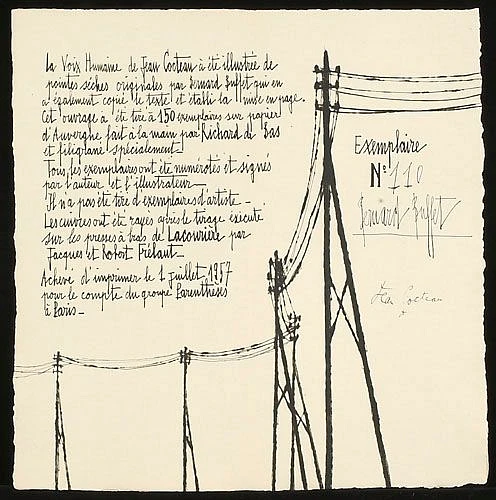 La Voix Humaine de Jean Cocteau à été illustrée de
pointes sèches originales par Bernard Buffet qui en
a également copié le texte et établi la mise en page.
Cet ouvrage à été tiré à 150 exemplaires sur papier
d'Auvergne fait à la main par Richard de Bas
et filigrané spécialement
Tous les exemplaires ont été numérotés et signés
par l'auteur et l'illustrateur_
Il n'a pas été tiré d'exemplaires d'artiste_
Les cuivres ont été rayés après le tirage exécuté
sur les presses à bras de Lacourière par
Jacques et Robert Frélaut_
Achevé d'imprimer le 1 juillet 1957
pour le compte du groupe Parenthèses
à Paris_
Exemplaire
N° 110
Bernard Buffet
Jean Cocteau